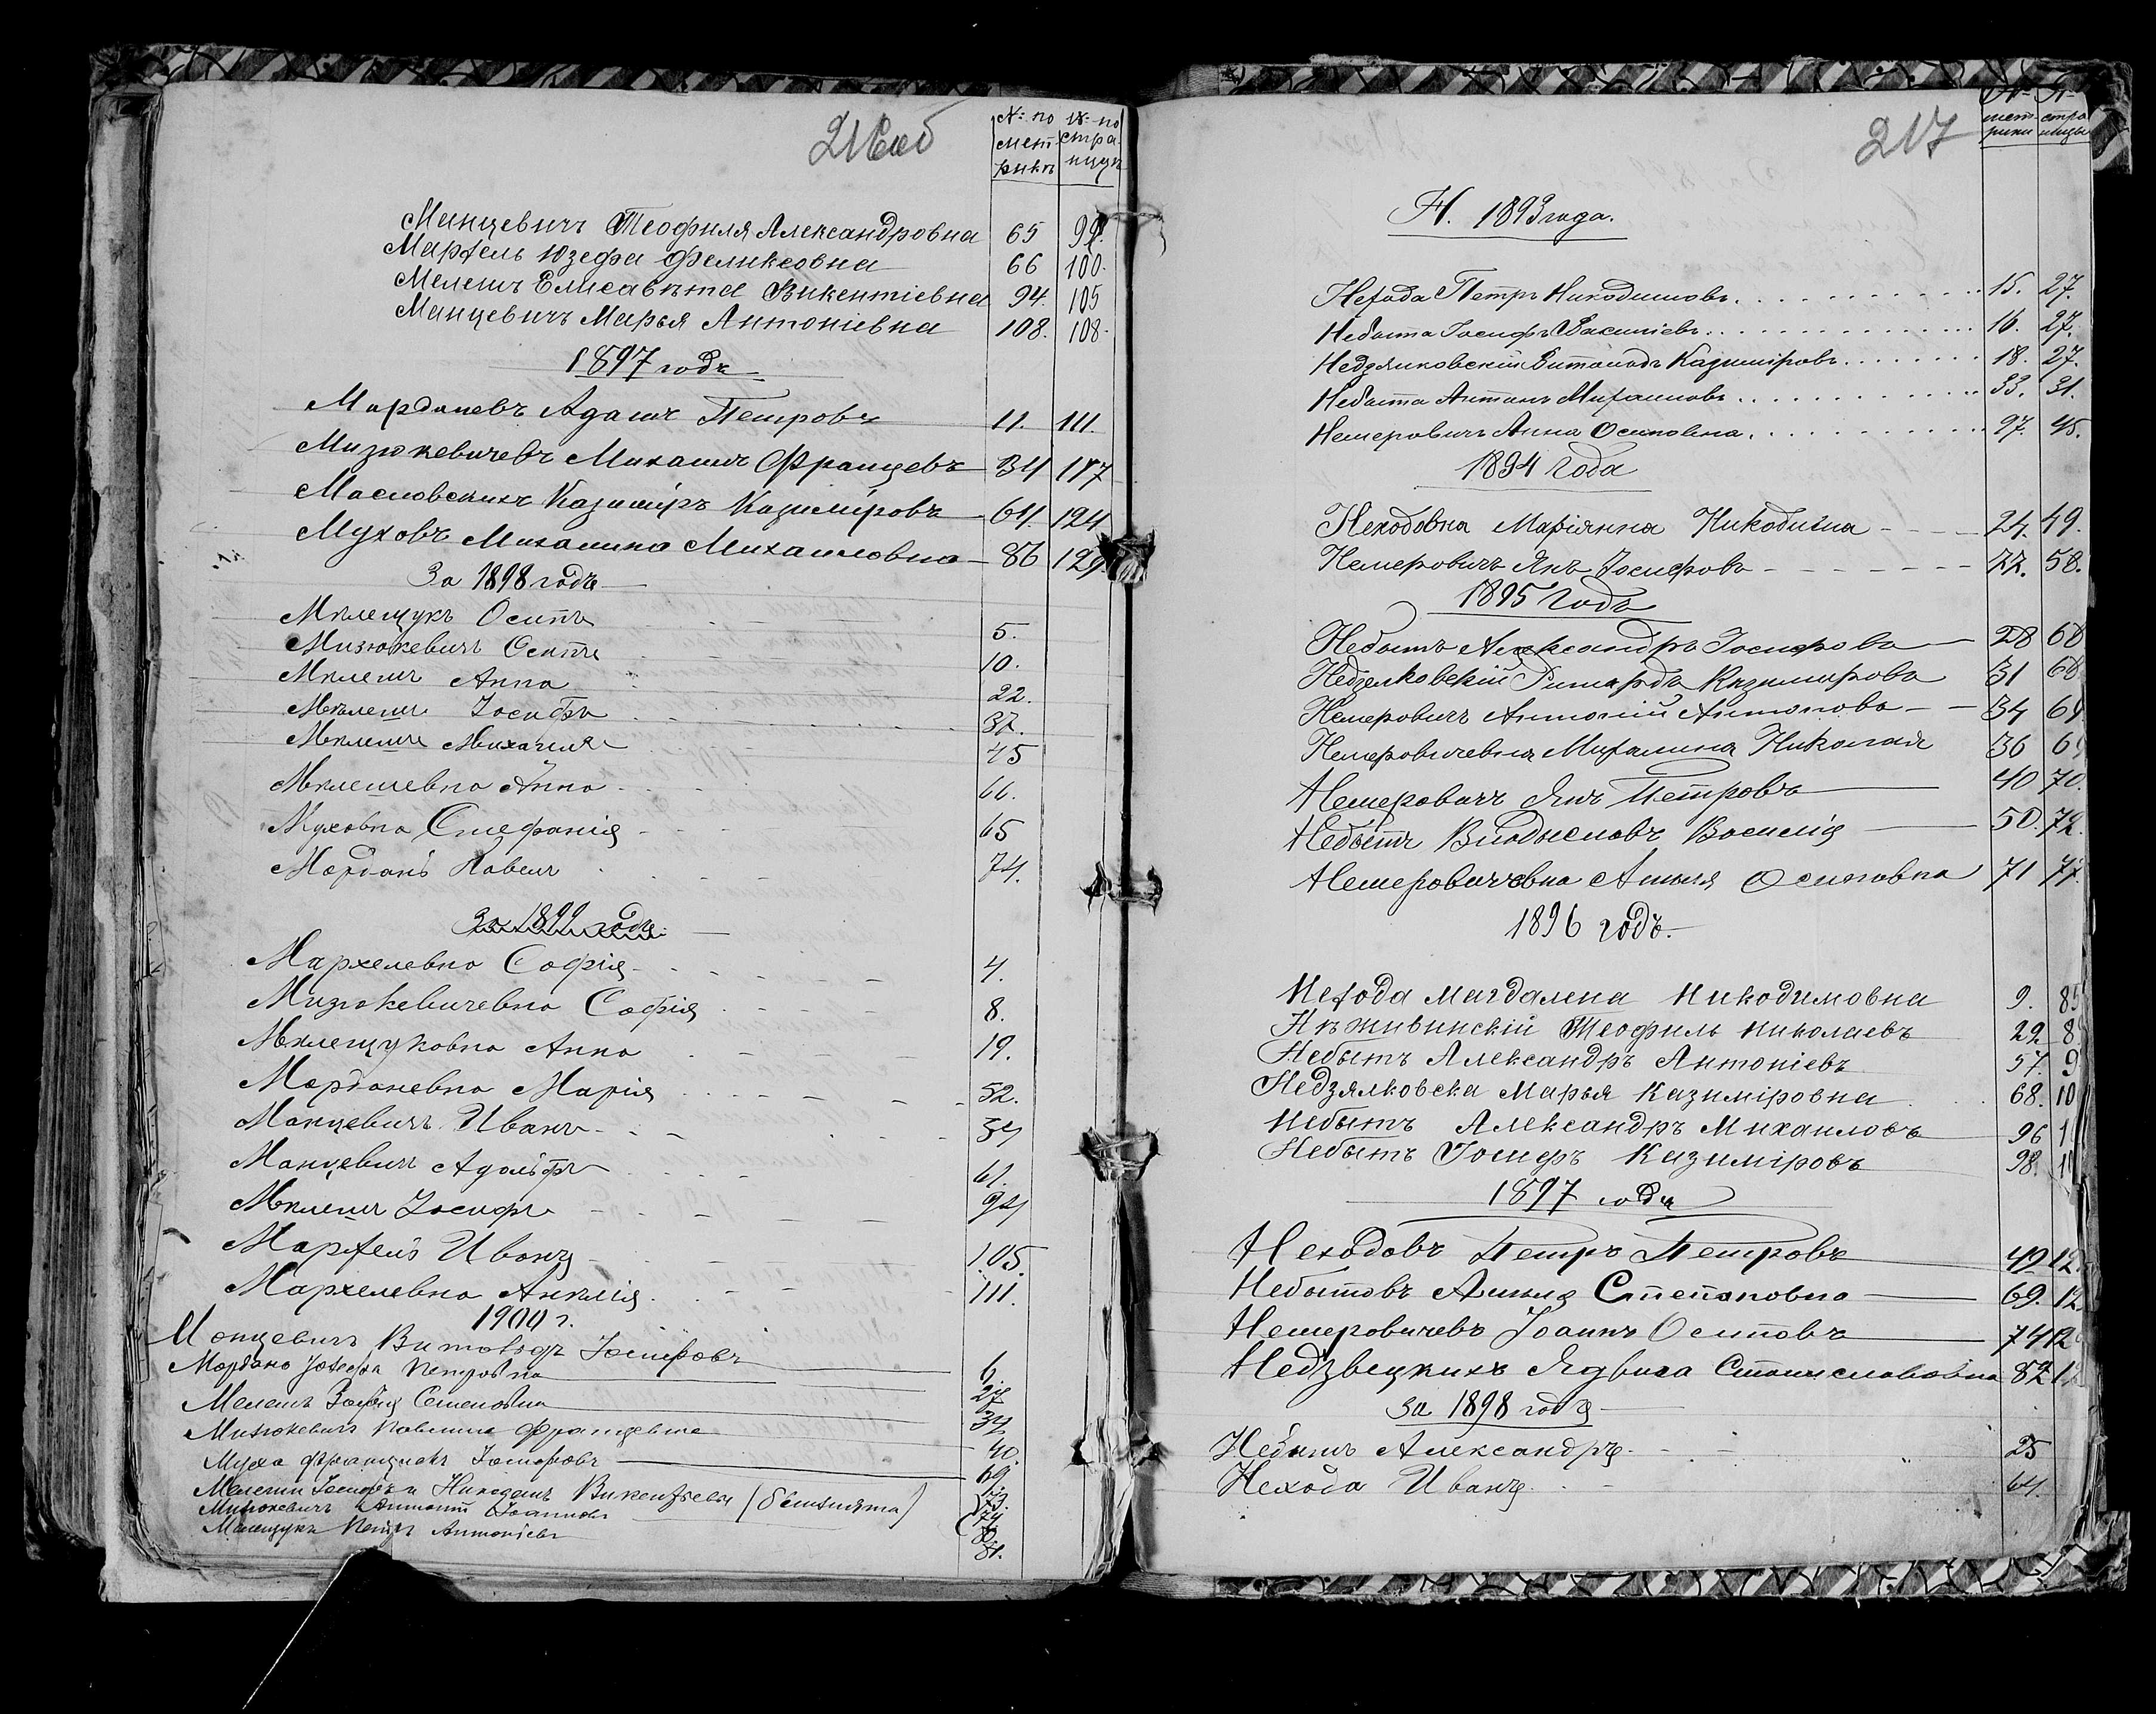 216об
№ по метрикѣ № по страницѣ
Манцевичъ Теофиля Александровна 65 99.
Мархель Юзефа Феликсовна 66 100.
Мелешъ Елисавѣта Викентіевна 94. 105
Манцевичъ Марья Антоніевна 108. 108.
1897 годъ
Марданевъ Адамъ Петровъ 11. 111.
Мизюкевичевъ Михаилъ Францевъ 34 117
Масловскихъ Казиміръ Казиміровъ 64. 124
Муховъ Михалина Михаиловна 86 129.
За 1898 годъ
Мѣлещукъ Осипъ 5.
Мизюкевичъ Осипъ 10.
Мѣлешъ Анна 22.
Мѣлешъ Іосифъ 37.
Мѣлешъ Михаилъ 45
Мѣлешевна Анна 66.
Муховна Стефанія 65
Морданъ Павелъ 74.
За 1899 годъ.
Мархелевна Софія 4.
Мизюкевичевна Софія 8.
Мѣлещуковна Анна 19.
Морданевна Марія 52.
Манцевичъ Иванъ 54
Манцевичъ Адольфъ 61.
Мѣлешъ Іосифъ 94
Мархель Иванъ 105.
Мархелевна Анелія 111.
1900 г.
Манцевичъ Витольдъ Іосифовъ 6.
Мордано Іозефа Петровна 27
Мелешъ Зофія Семеновна 34
Мизюкевичъ Павлина Францевна 40.
Муха Францишекъ Іосифовъ 69
Мелеши Іосифъ и Никодимъ Викентьевы (близнята) 73. 74
Мизюкевичъ Антоній Іоанновъ 80
Мелещукъ Петръ Антоніевъ 81.
217
№ метрики № страницы
Н. 1893 года.
Нехода Петръ Никодимовъ 15. 27.
Небыта Іосифъ Василіевъ 16. 27.
Недзялковскій Витольдъ Казиміровъ 18. 27.
Небыта Антонъ Михаиловъ 33. 31.
Немеровичъ Анна Осиповна 97. 45.
1894 года
Неходовна Маріянна Никодима 24. 49.
Немеровичъ Янъ Іосифовъ 72. 58.
1895 Годъ
Небытъ Александръ Іосифова 28 68
Недзелковскій Ришардъ Казимирова 31 68
Немеровичъ Антоній Антонова 34 69
Немеровичевна Михалина Николая 36 69
Немеровичъ Янъ Петровъ 40 70.
Небытъ Владыславъ Василія 50. 72.
Немеровичевна Анеля Осиповна 71 77.
1896 годъ.
Нехода Магдалена Никодимовна 9. 85
Нѣживинскій Теофиль Николаевъ 22 8
Небытъ Александръ Антоніевъ 57. 9
Недзялковска Марья Казиміровна 68. 10
Небытъ Александръ Михаиловъ 96 1
Небытъ Іосифъ Казиміровъ 98. 1
1897 годъ
Неходовъ Петръ Петровъ 49 12
Небытовъ Анеля Степановна 69. 12
Немеровичевъ Іоаннъ Осиповъ 74 12
Недзвецкихъ Ядвига Станиславовна 82 1
За 1898 годъ
Небытъ Александръ 25
Нехода Иванъ 64.